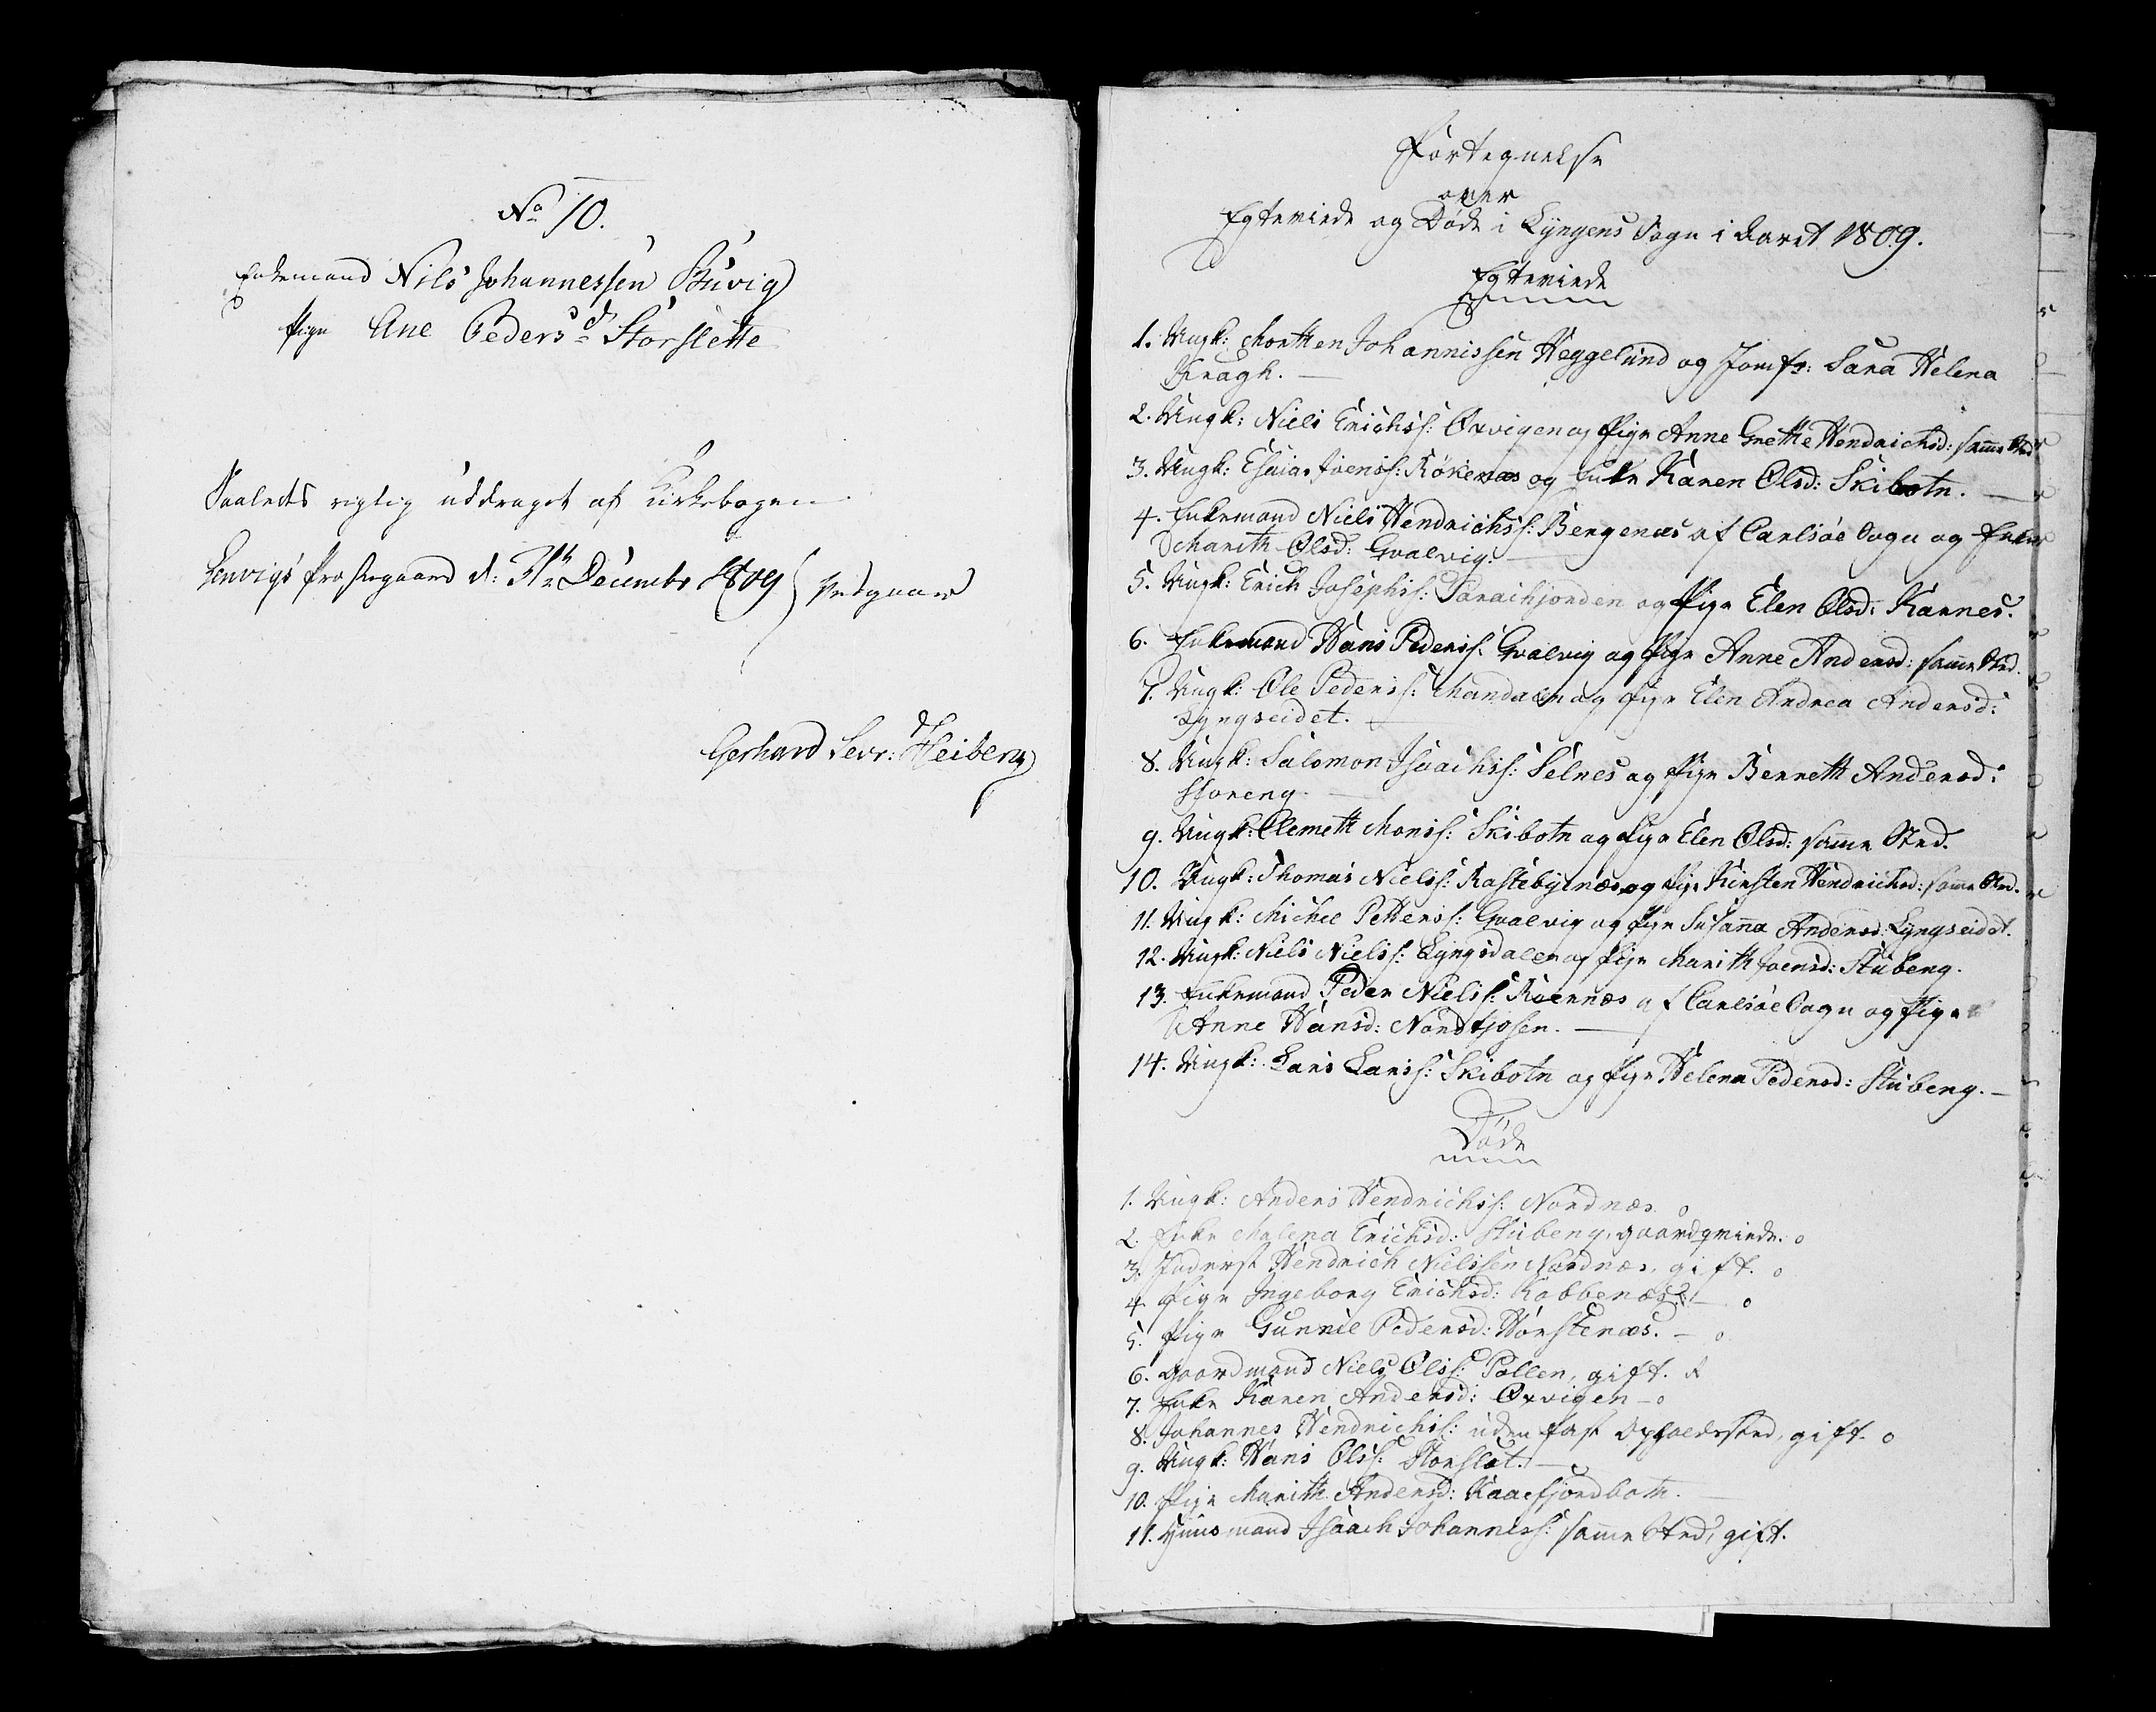 No 10.
Enkemand Nils Johannessen Buvig
Pige Ane Pedersd Storslette
Saaledes rigtig uddraget af Kirkebogen
Lenvigs Præstegaard d: 31te Decembr 1809
Gerhard Sevr: Heiberg
Fortegnelse
over
Egteviede og Døde i Lyngens Sogn i Aaret 1809.
Egteviede
1. Ungk: Morthen Johannissen Heggelund og Jomfr: Sara Helena
Kragh. —
2. Ungk: Niels Erichss: Oxvigen og Pige Anne Grethe Hendrichsd: samme Sted
3. Ungk: Esaias Joenss: Rökenæs og Enke Karen Olsd: Skibotn. —
4. Enkemand Niels Hendrichss: Bergenæs af Carlsöe Sogn og Enke
Marith Olsd: Qvalvig. —
5. Ungk: Erich Josephss: Sorachjorden og Pige Elen Olsd: Karnes.
6. Enkemand Hans Pederss: Qvalvig og Pige Anne Andersd: samme Sted.
7. Ungk: Ole Pederss: Mandalen og Pige Elen Andrea Andersd:
Lyngseidet. —
8. Ungk: Salomon Isaachss: Selnes og Pige Bereth Andersd:
Storeng. —
9. Ungk: Clemeth Monss: Skibotn og Pige Elen Olsd: samme Sted.
10. Ungk: Thomas Nielss: Rastebynæs og Pige Kirsten Hendrichsd: samme Sted.
11. Ungk: Michel Petterss: Qvalvig og Pige Susanna Andersd: Lyngseidet.
12. Ungk: Niels Nielss: Lyngsdalen og Pige Marith Joensd: Stubeng.
13. Enkemand Peder Nielss: Roernæs af Carlsöe Sogn og Pige
Anne Hansd: Nordkjosen. —
14. Ungk: Lars Larss: Skibotn og Pige Helena Pedersd: Stubeng. —
Døde
1. Ungk: Anders Hendrichss: Nordnæs. o
2. Enke Malena Erichsd: Stubeng, gaardqvinde. o
3. Inderst Hendrich Nielssen Nordnæs, gift. o
4. Pige Ingeborg Erichsd: Kobbenæs. — o
5. Pige Gunnil Pedersd: Horstenæs. — o
6. Gaardmand Niels Olss: Pollen, gift.
7. Enke Karen Andersd: Oxvigen — o
8. Johannes Hendrichs: uden fast Opholdssted, gift. o
9. Ungk: Hans Olss: Storslet. —
10. Pige Marith Andersd: Kaaefjordbotn. —
11. Huusmand Isaach Johanness: samme Sted, gift.